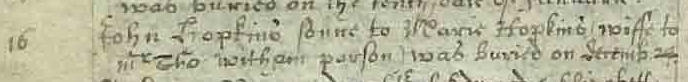 was buried on the tenth daie of Januarie
16 John Hopkins sonne to Marie Hopkins, wiffe to
mr Tho: witham parson, was buried on decemb. 24.